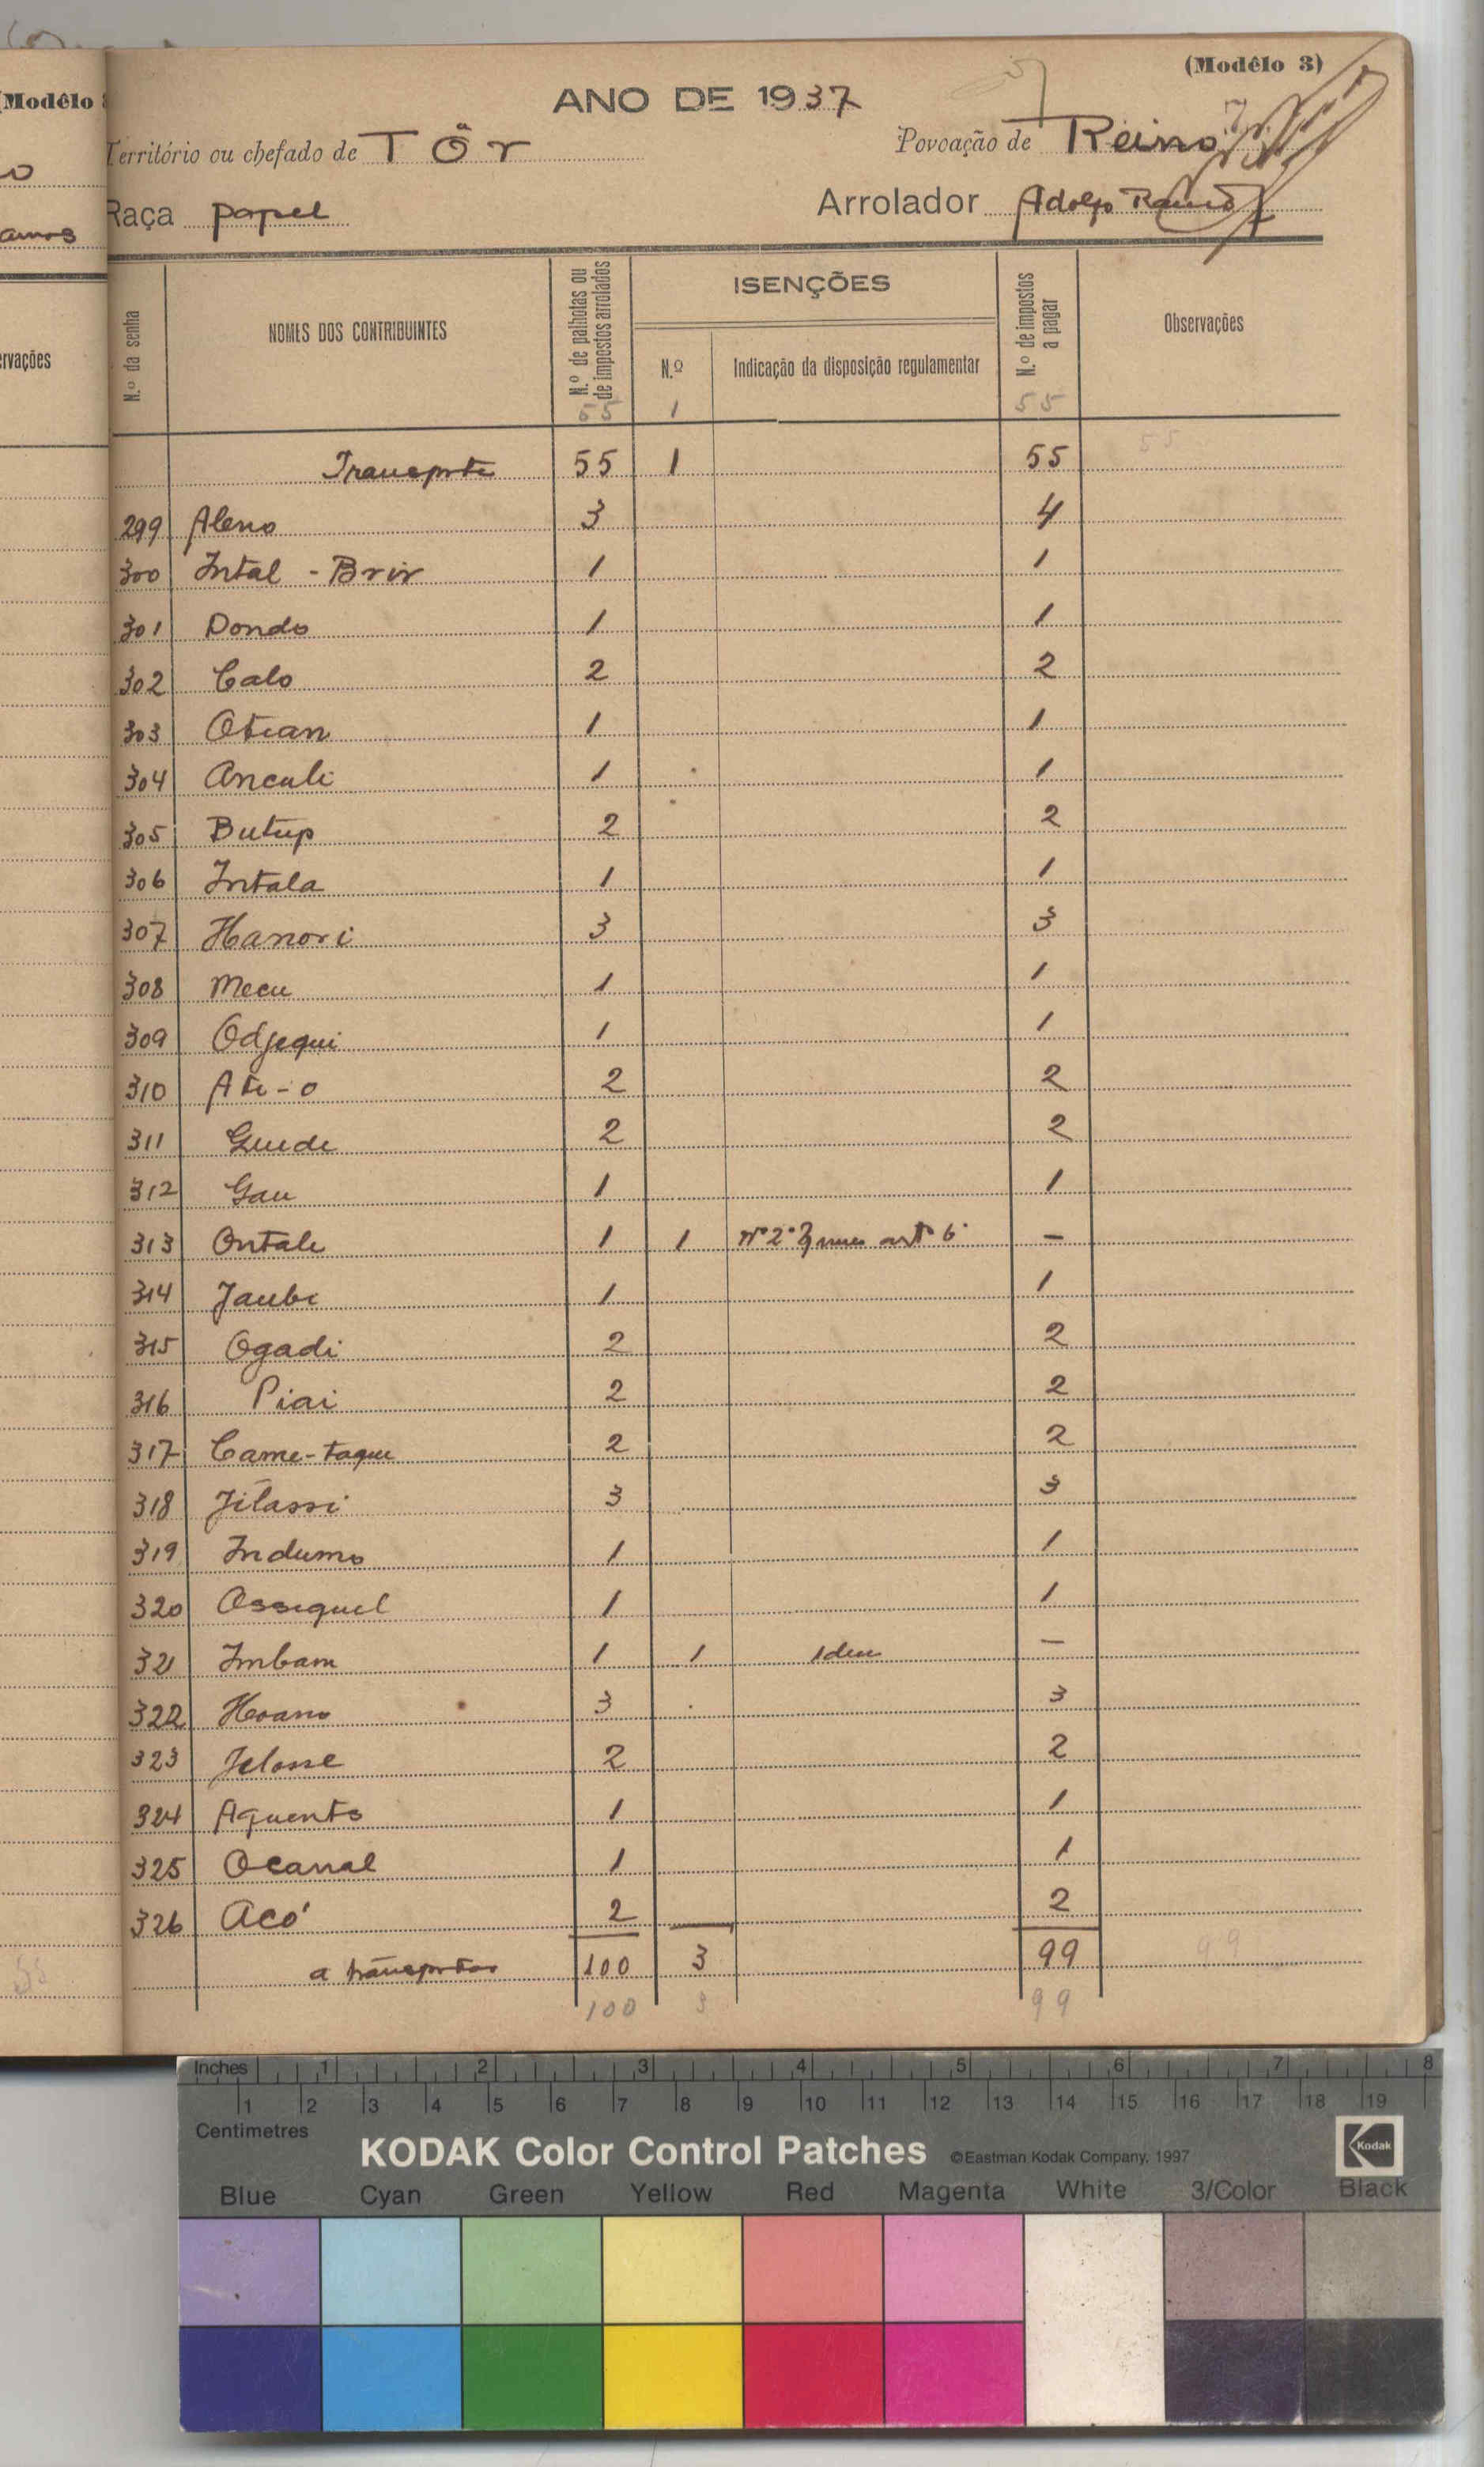 (Modêlo 3)
ANO DE 1937
Território ou chefado de Tôr
Povoação de Reino
Raça papel
Arrolador Adolfo Ramos
N.º da senha
NOMES DOS CONTRIBUINTES
N.º de palhotas ou de impostos arrolados
ISENÇÕES
N.º
Indicação da disposição regulamentar
N.º de impostos a pagar
Observações
55 1 55
Transporte 55 1 55 55
299 Aleno 3 4
300 Intal - Brir 1 1
301 Dondo 1 1
302 Calo 2 2
303 Otian 1 1
304 Anculi 1 1
305 Butup 2 2
306 Intala 1 1
307 Hanori 3 3
308 Mecu 1 1
309 Odjequi 1 1
310 Ate-o 2 2
311 Guede 2 2
312 Gau 1 1
313 Ontale 1 1 Nº 2º artº 6º -
314 Jaubi 1 1
315 Ogadi 2 2
316 Piai 2 2
317 Came-taque 2 2
318 Jilassi 3 3
319 Indumo 1 1
320 Ossequel 1 1
321 Imbam 1 1 Idem -
322 Hoano 3 3
323 Jelosse 2 2
324 Aquento 1 1
325 Ocanal 1 1
326 Acó 2 2
a transportar 100 3 99 99
100 3 99
(Modêlo
amos
rvações
55
Inches 1 2 3 4 5 6 7 8
1 2 3 4 5 6 7 8 9 10 11 12 13 14 15 16 17 18 19
Centimetres
KODAK Color Control Patches ©Eastman Kodak Company, 1997 Kodak
Blue Cyan Green Yellow Red Magenta White 3/Color Black